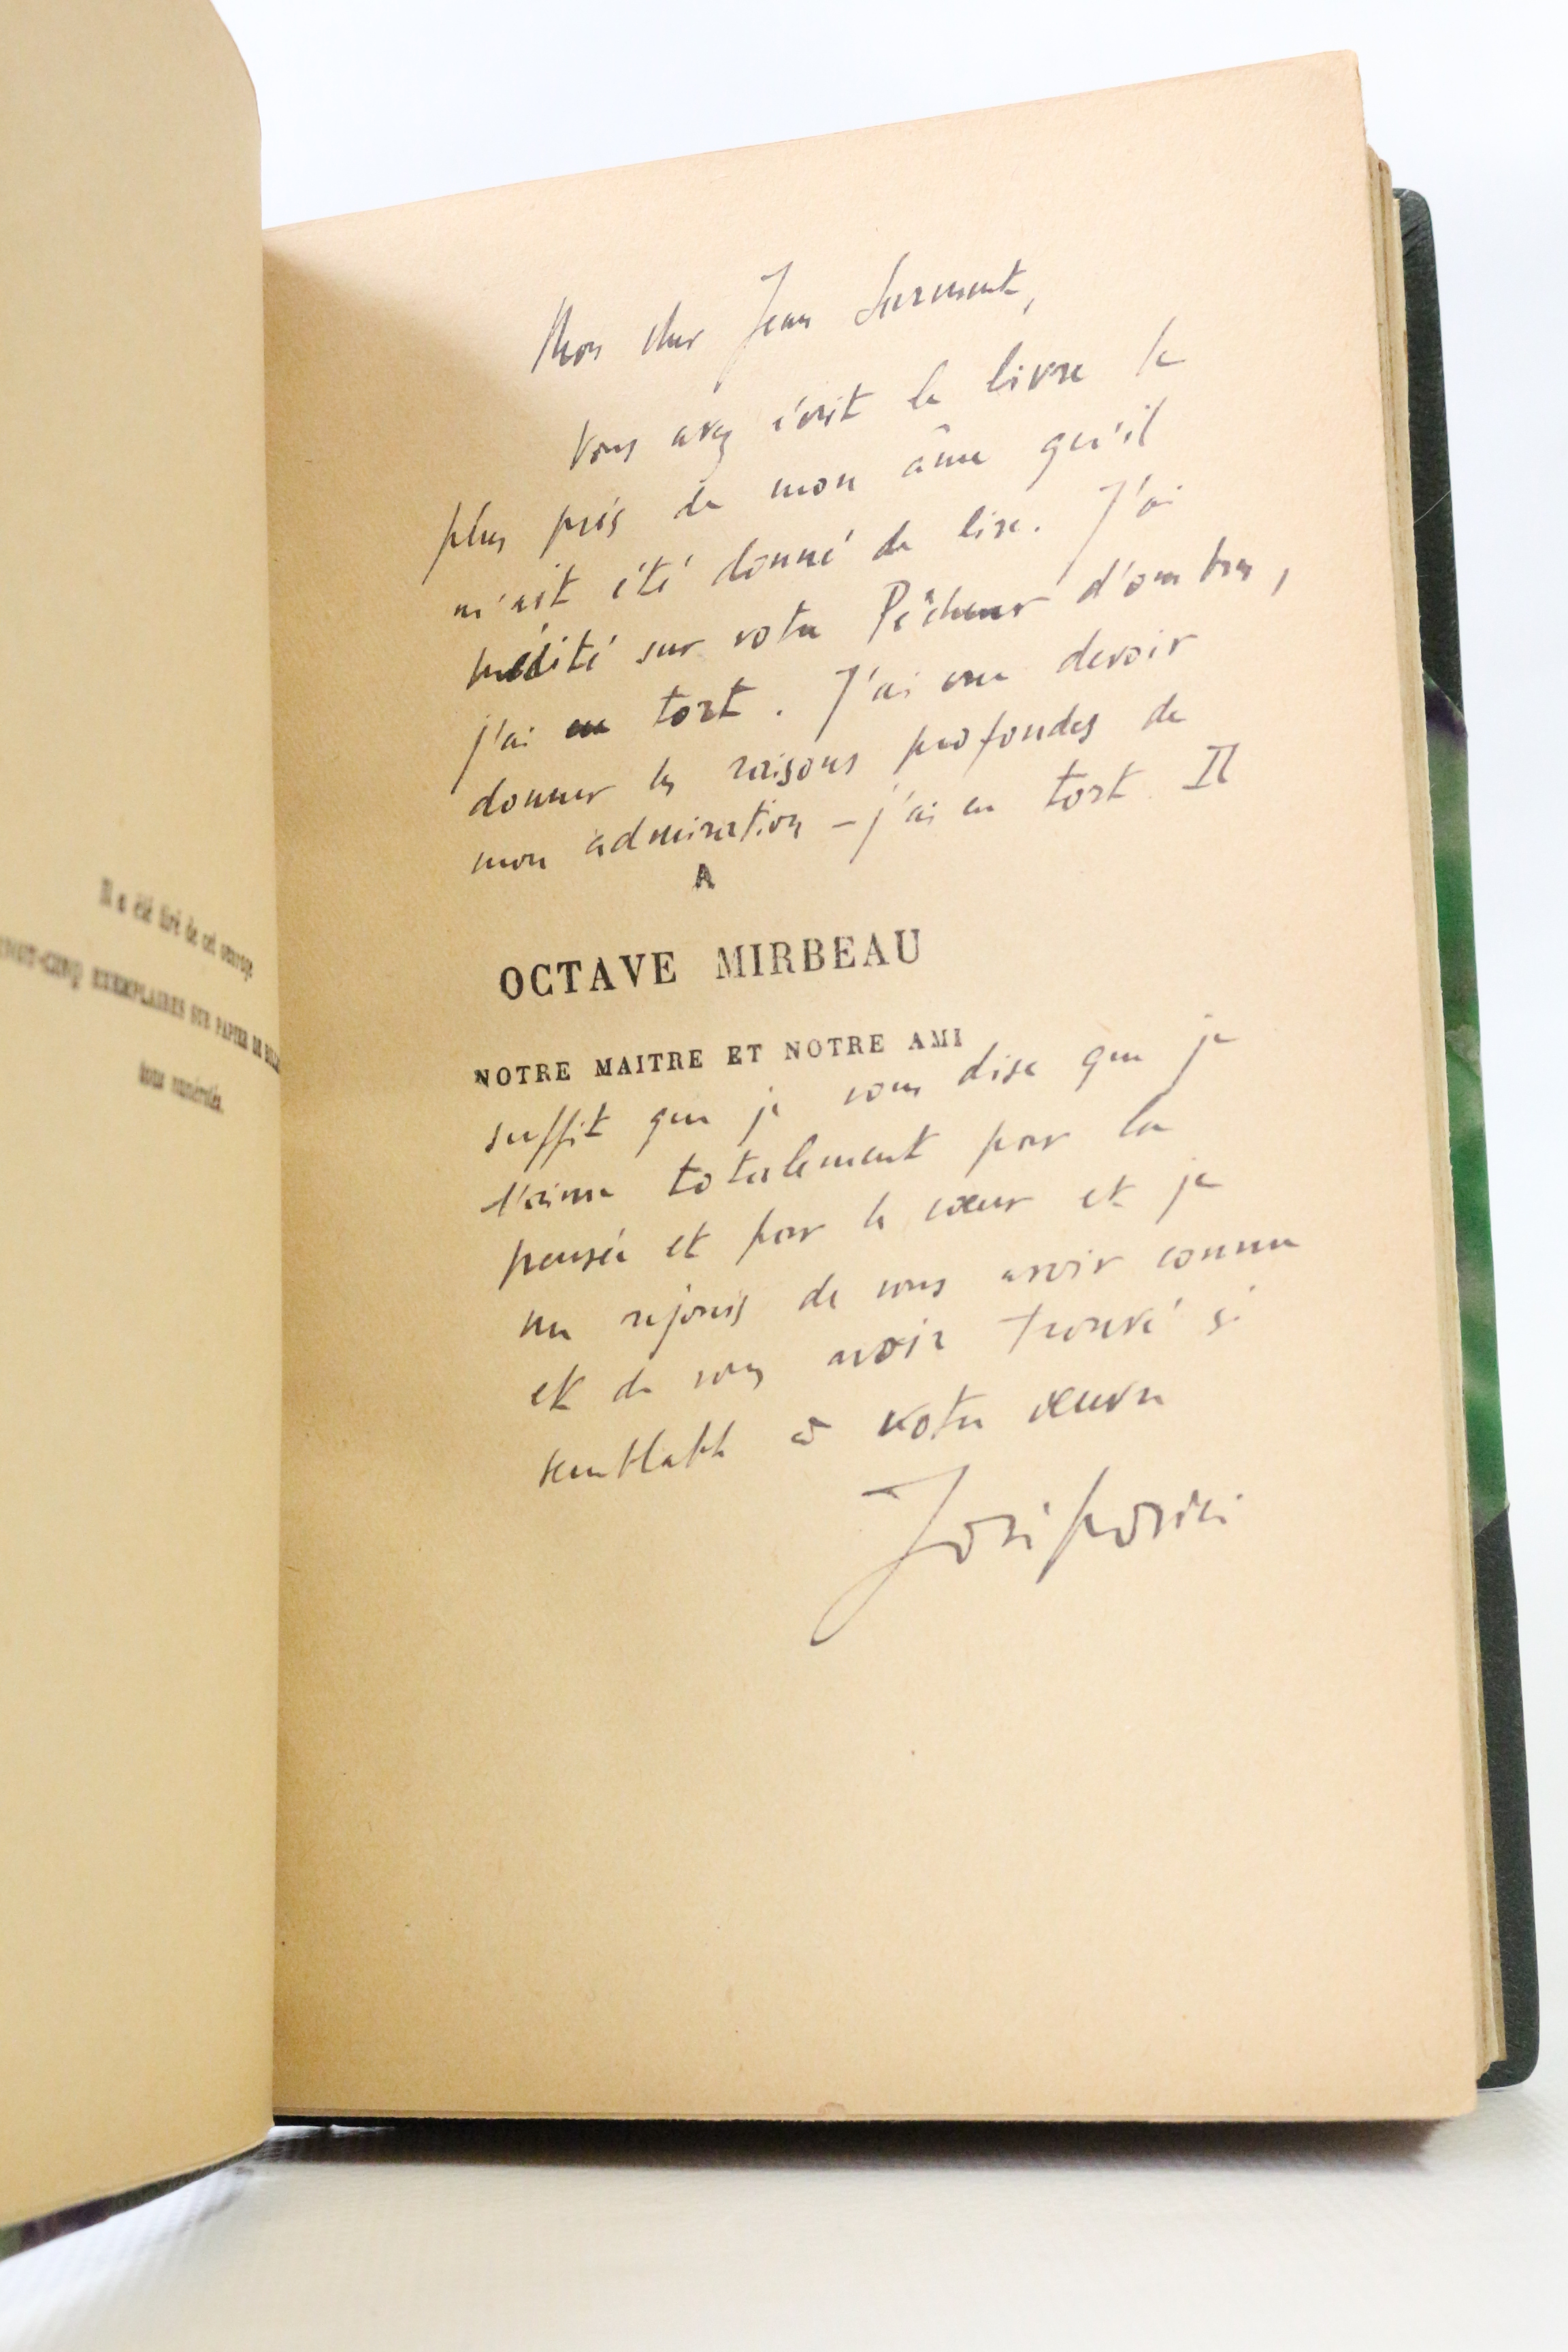 Il a été tiré de cet ouvrage
VINGT-CINQ EXEMPLAIRES SUR PAPIER DE
tous numérotés.
Mon cher Jean Sarment,
Vous avez écrit le livre le
plus près de mon âme qu'il
m'ait été donné de lire. J'ai
médité sur votre Pêcheur d'ombres,
j'ai eu tort. J'ai cru devoir
donner les raisons profondes de
mon admiration – j'ai eu tort. Il
A
OCTAVE MIRBEAU
NOTRE MAITRE ET NOTRE AMI
suffit que je vous dise que je
l'aime totalement par la
pensée et par le cœur et je
me réjouis de vous avoir connu
et de vous avoir trouvé si
semblable à votre œuvre
Josipovici